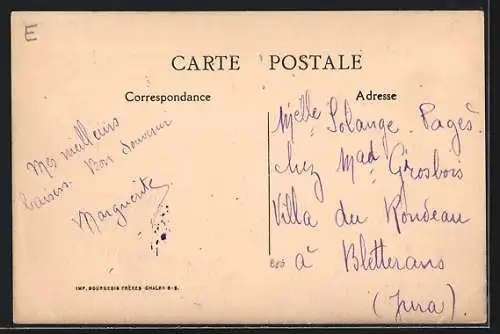 E
CARTE POSTALE
Correspondance
Adresse
Mes meilleurs
baisers. Bon Souvenir
Marguerite
Melle Solange Pagès
chez Mad Grosbois
Villa du Rondeau
à Bletterans
(Jura)
IMP. BOURGEOIS FRÈRES CHALON S-S.